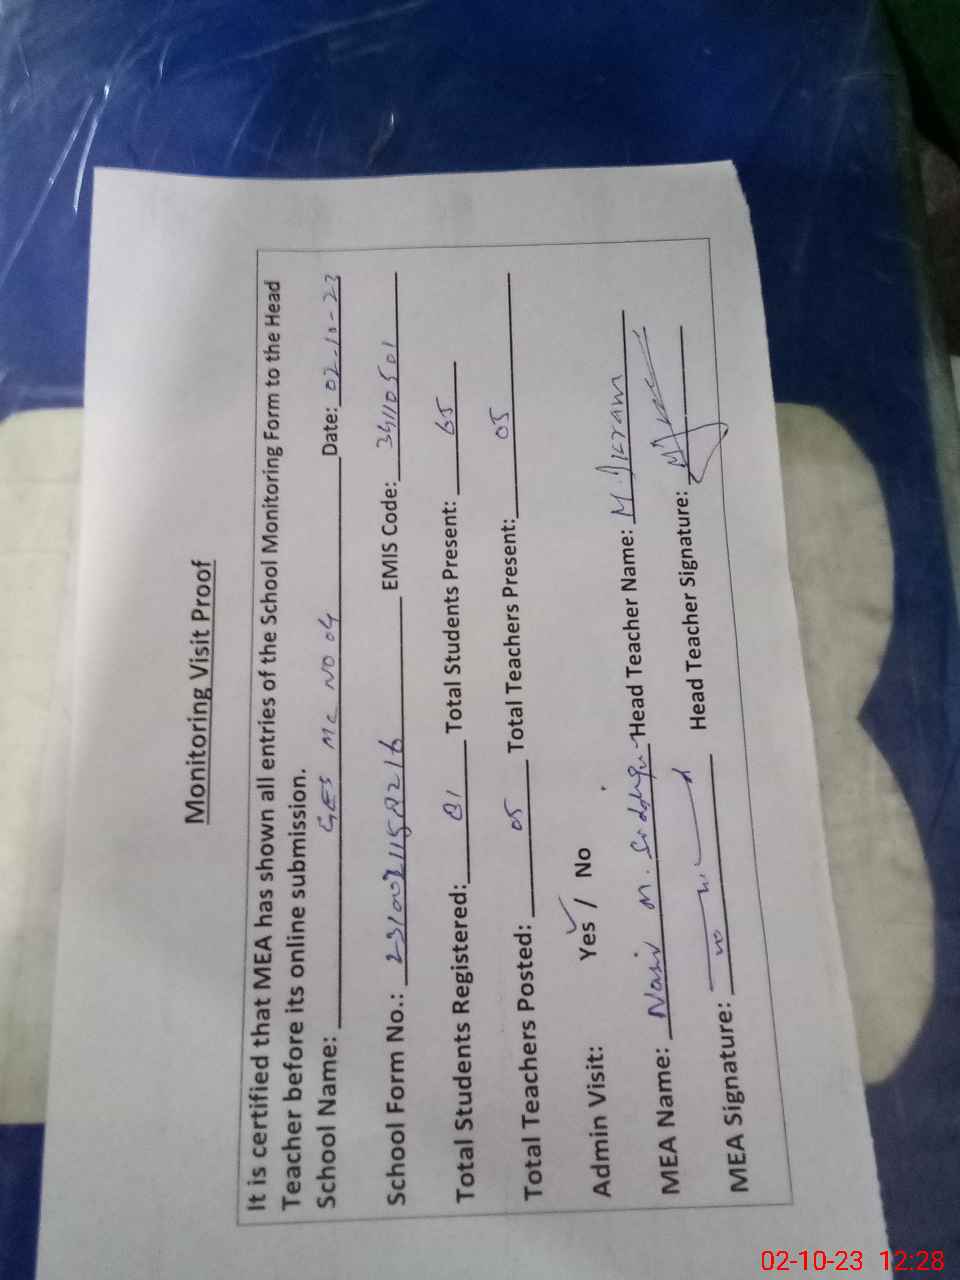 Monitoring Visit Proof
It is certified that MEA has shown all entries of the School Monitoring Form to the Head
Teacher before its online submission.
School Name: GES MC NO 04 Date: 02-10-23
School Form No.: EMIS Code: 34110501
Total Students Registered: 81 Total Students Present: 65
Total Teachers Posted: 05 Total Teachers Present: 05
Admin Visit: Yes / No
MEA Name: Nasir M. Head Teacher Name: M. Ikram
MEA Signature: Head Teacher Signature:
02-10-23 12:28